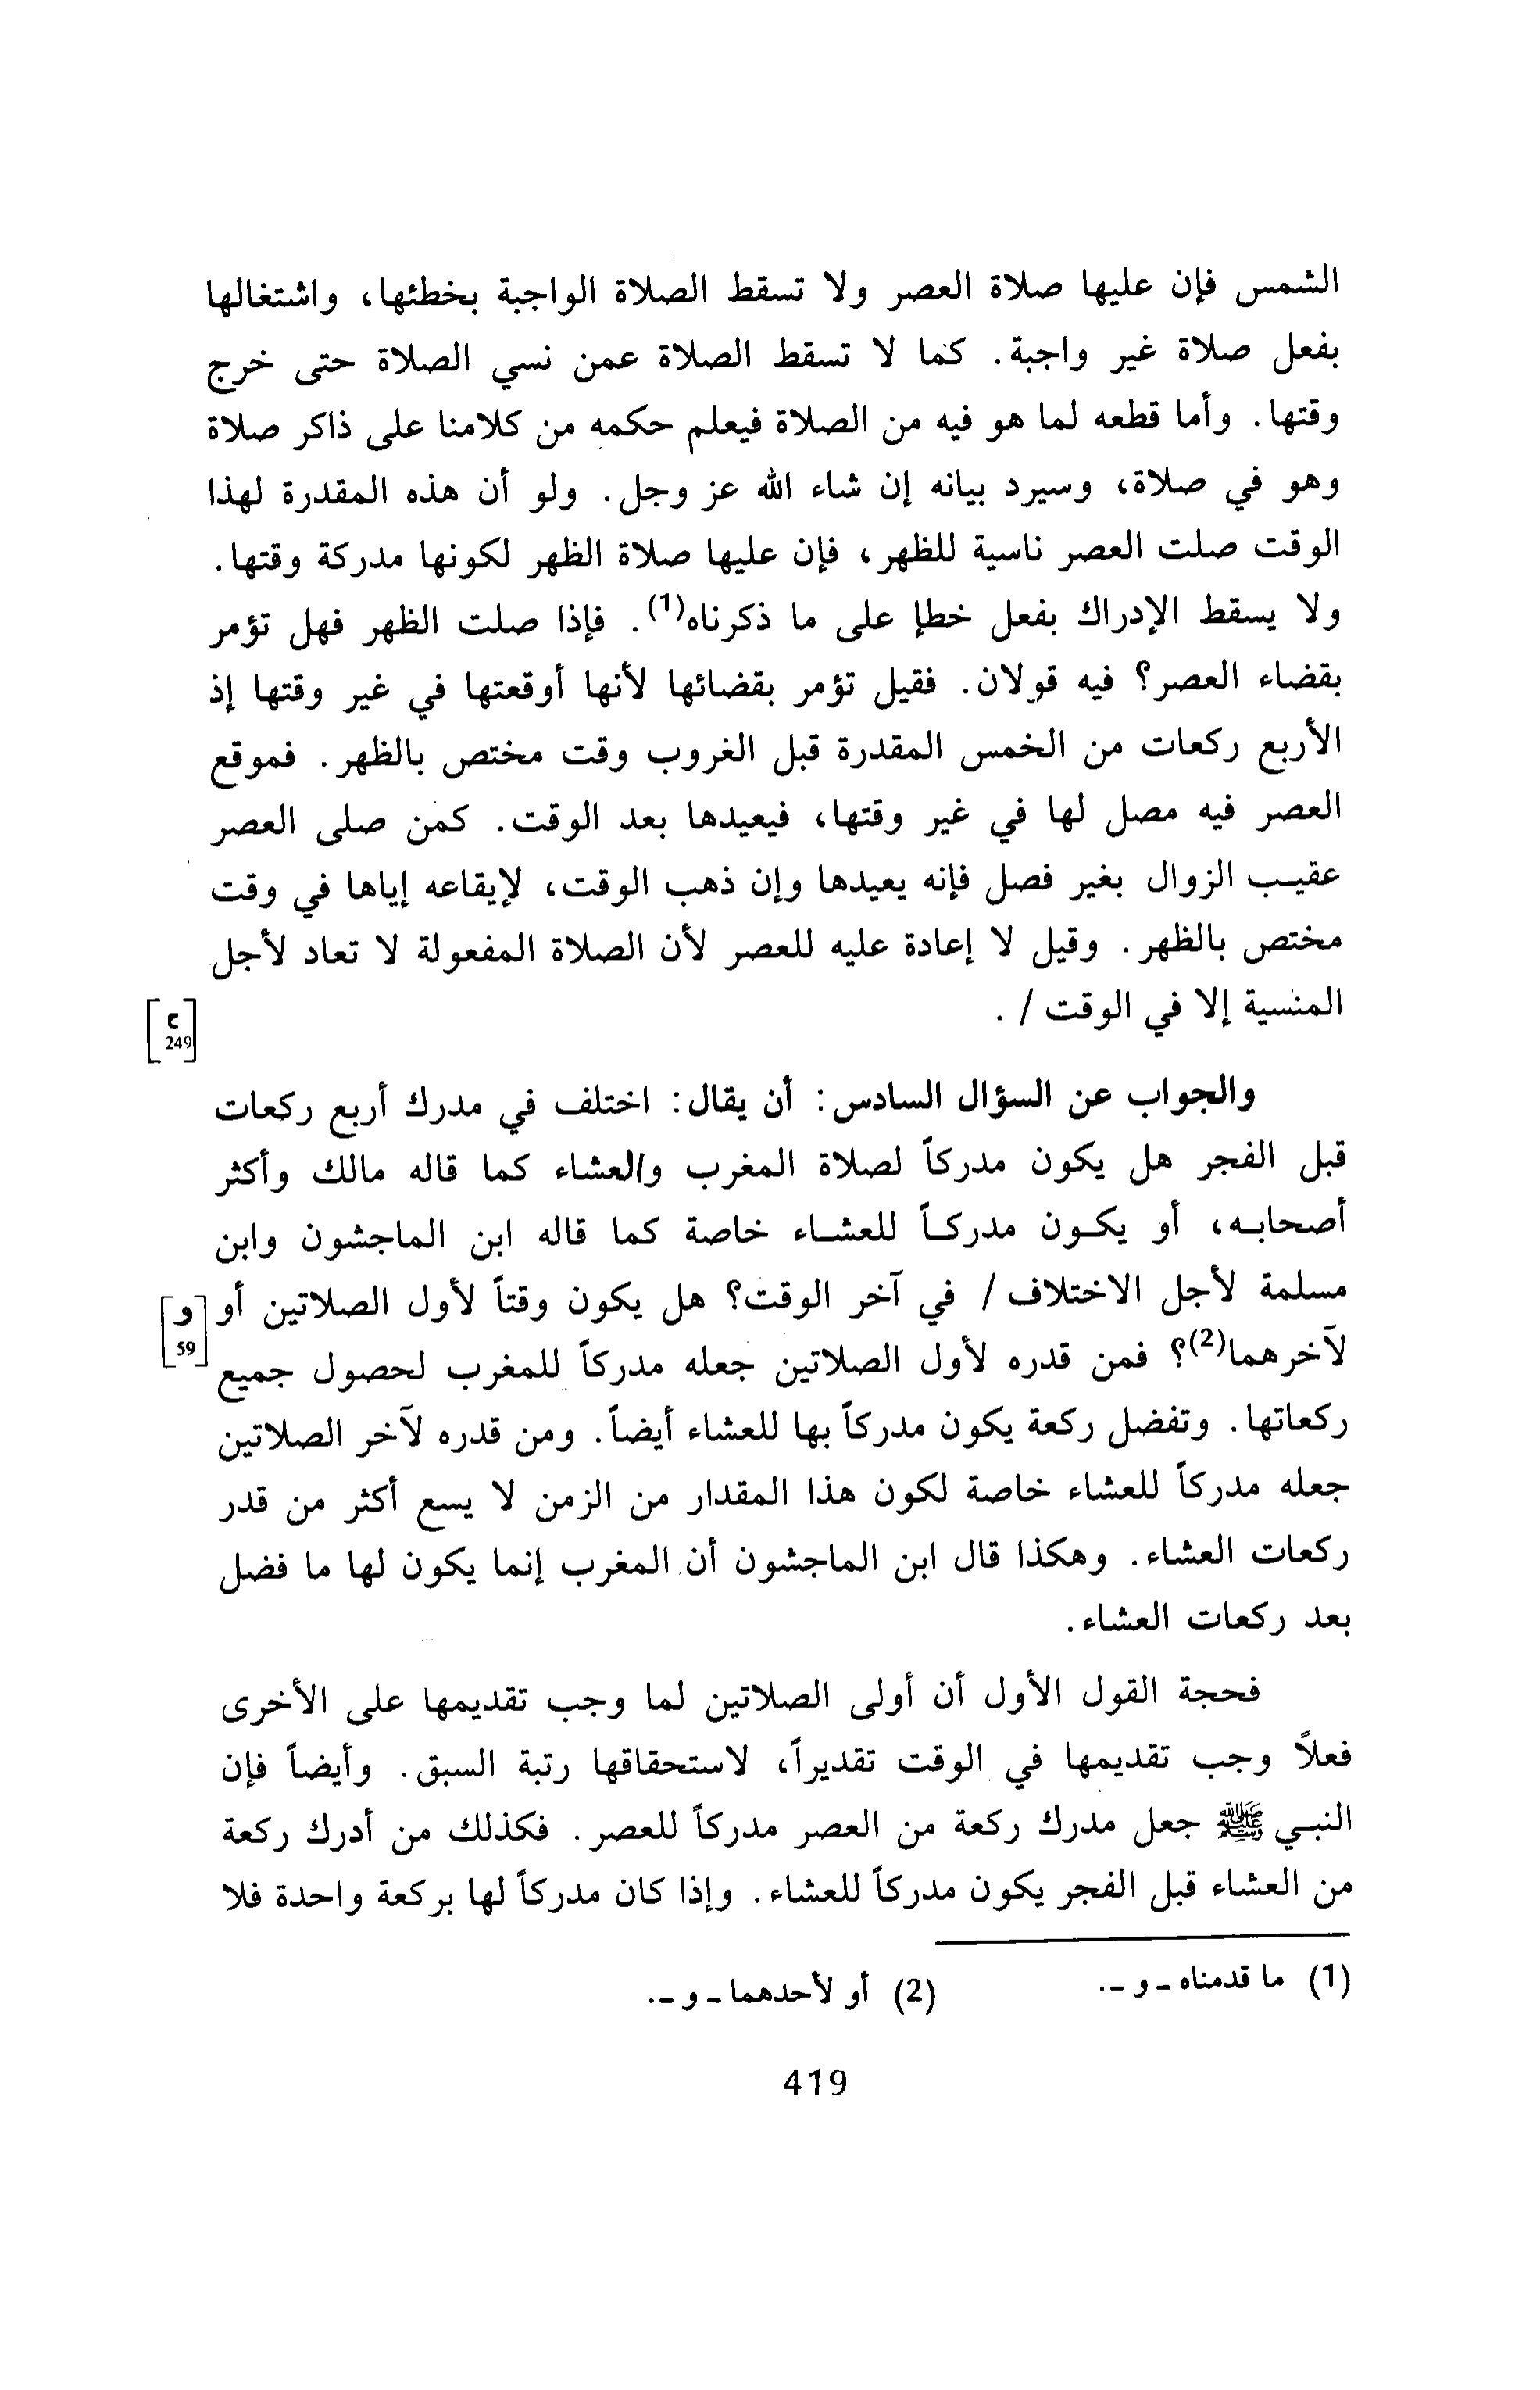 الشمس فإن عليها صلاة العصر ولا تسقط الصلاة الواجبة بخطئها، واشتغالها
بفعل صلاة غير واجبة. كما لا تسقط الصلاة عمن نسي الصلاة حتى خرج
وقتها. وأما قطعه لما هو فيه من الصلاة فيعلم حكمه من كلامنا على ذاكر صلاة
وهو في صلاة، وسيرد بيانه إن شاء الله عز وجل. ولو أن هذه المقدرة لهذا
الوقت صلت العصر ناسية للظهر، فإن عليها صلاة الظهر لكونها مدركة وقتها.
ولا يسقط الإدراك بفعل خطإ على ما ذكرناه(1). فإذا صلت الظهر فهل تؤمر
بقضاء العصر؟ فيه قولان. فقيل تؤمر بقضائها لأنها أوقعتها في غير وقتها إذ
الأربع ركعات من الخمس المقدرة قبل الغروب وقت مختص بالظهر. فموقع
العصر فيه مصل لها في غير وقتها، فيعيدها بعد الوقت. كمن صلى العصر
عقيب الزوال بغير فصل فإنه يعيدها وإن ذهب الوقت، لإيقاعه إياها في وقت
مختص بالظهر. وقيل لا إعادة عليه للعصر لأن الصلاة المفعولة لا تعاد لأجل
المنسية إلا في الوقت / .
[ح 249]
والجواب عن السؤال السادس: أن يقال: اختلف في مدرك أربع ركعات
قبل الفجر هل يكون مدركاً لصلاة المغرب والعشاء كما قاله مالك وأكثر
أصحابه، أو يكون مدركاً للعشاء خاصة كما قاله ابن الماجشون وابن
مسلمة لأجل الاختلاف / في آخر الوقت؟ هل يكون وقتاً لأول الصلاتين أو
[و 59]
لآخرهما(2)؟ فمن قدره لأول الصلاتين جعله مدركاً للمغرب لحصول جميع
ركعاتها. وتفضل ركعة يكون مدركاً بها للعشاء أيضاً. ومن قدره لآخر الصلاتين
جعله مدركاً للعشاء خاصة لكون هذا المقدار من الزمن لا يسع أكثر من قدر
ركعات العشاء. وهكذا قال ابن الماجشون أن المغرب إنما يكون لها ما فضل
بعد ركعات العشاء.
فحجة القول الأول أن أولى الصلاتين لما وجب تقديمها على الأخرى
فعلاً وجب تقديمها في الوقت تقديراً، لاستحقاقها رتبة السبق. وأيضاً فإن
النبي ﷺ جعل مدرك ركعة من العصر مدركاً للعصر. فكذلك من أدرك ركعة
من العشاء قبل الفجر يكون مدركاً للعشاء. وإذا كان مدركاً لها بركعة واحدة فلا
(1) ما قدمناه - و -. (2) أو لأحدهما - و -.
419